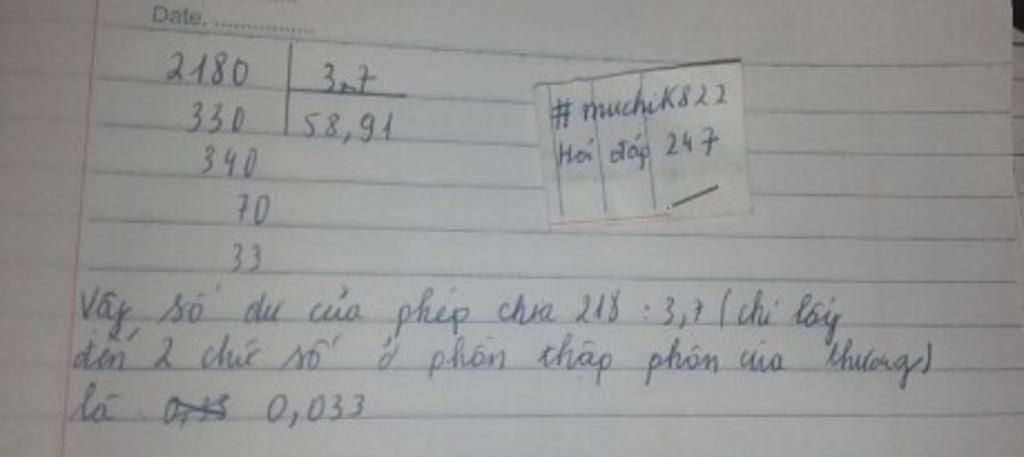 Date, ...............
2180 3,7
330 58,91
340
70
33
# muchiK822
Hỏi đáp 247
Vậy số dư của phép chia 218 : 3,7 ( chỉ lấy
đến 2 chữ số ở phần thập phân của thương)
là 0,033